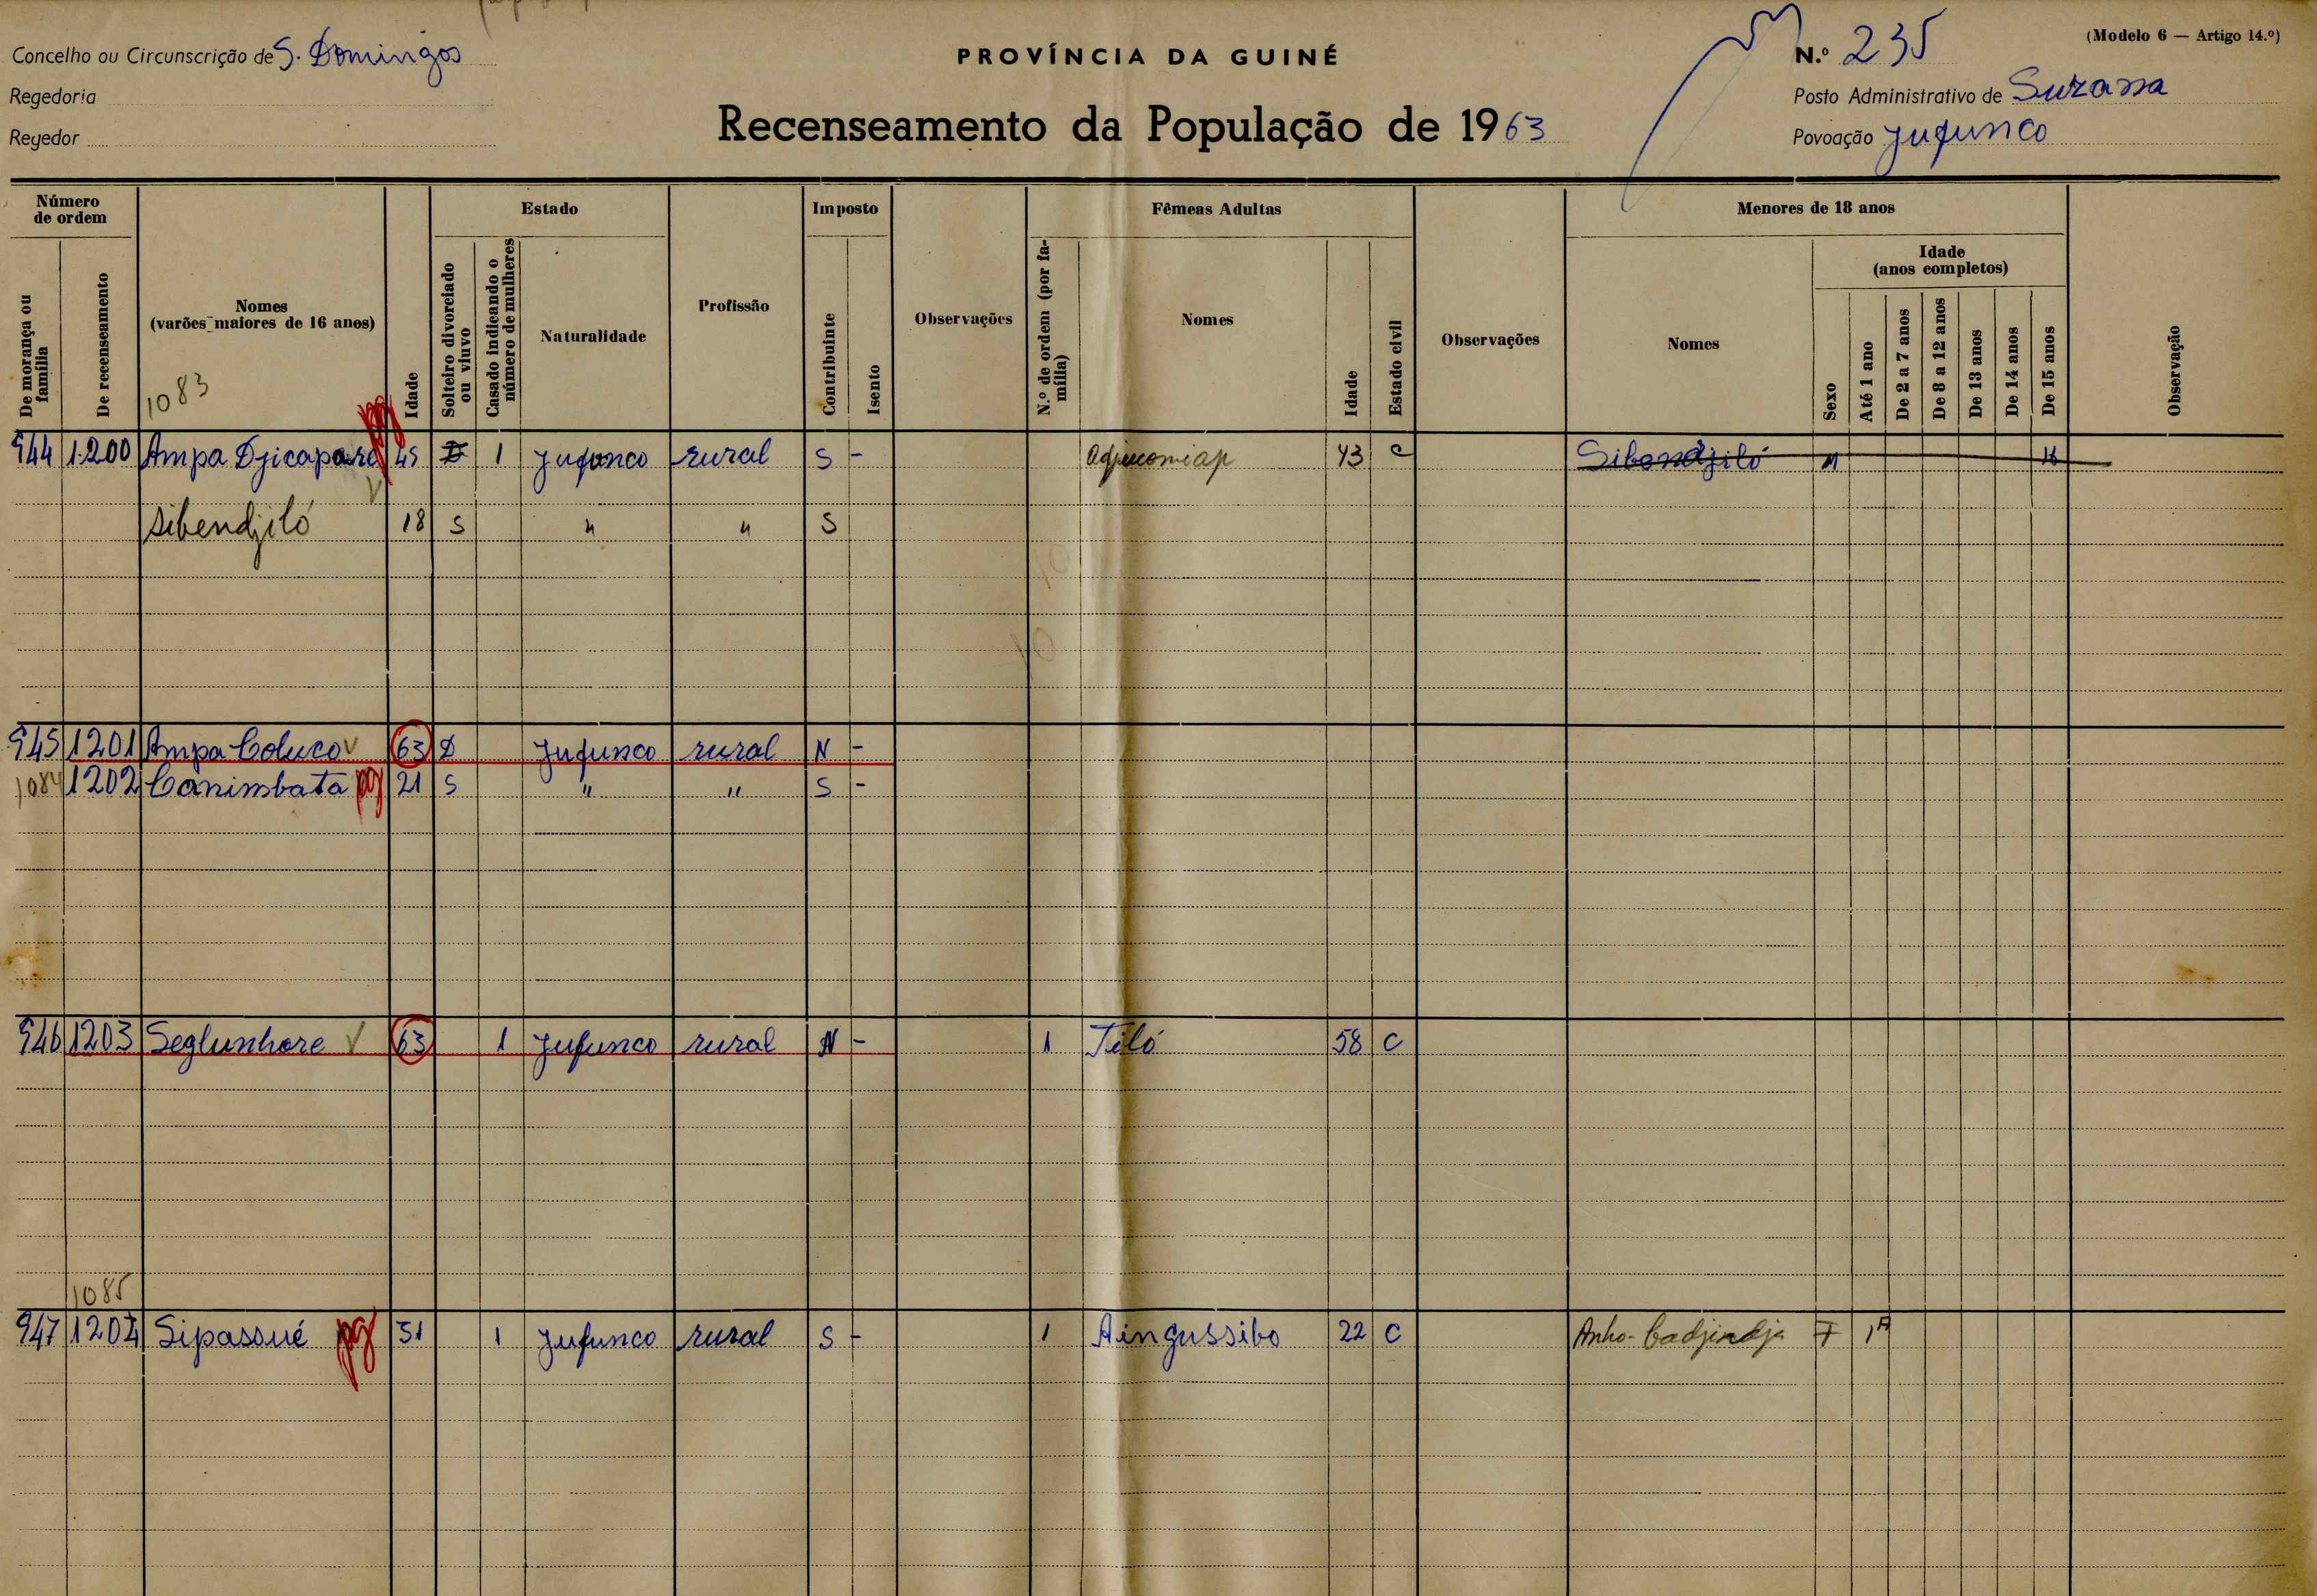 Concelho ou Circunscrição de S. Domingos
PROVÍNCIA DA GUINÉ
N.º 235
(Modelo 6 — Artigo 14.º)
Regedoria
Posto Administrativo de Suzana
Reyedor
Recenseamento da População de 1963
Povoação Jufunco
Número de ordem
Estado
Imposto
Fêmeas Adultas
Menores de 18 anos
De morança ou família
De recenseamento
Nomes
(varões maiores de 16 anos)
Idade
Solteiro divorciado ou viuvo
Casado indicando o número de mulheres
Naturalidade
Profissão
Contribuinte
Isento
Observações
N.º de ordem (por família)
Nomes
Idade
Estado civil
Observações
Nomes
Sexo
Idade
(anos completos)
Até 1 ano
De 2 a 7 anos
De 8 a 12 anos
De 13 anos
De 14 anos
De 15 anos
Observação
1083
944 1200 Ampa Djicapare pg 45 D 1 Jufunco rural S - 43 C Sibendjiló M 16
Sibendjiló 18 S " " S
945 1201 Ampa Coluco V 63 D Jufunco rural N -
1084 1202 Canimbata pg 21 S " " S -
946 1203 Seglunhare V 63 1 Jufunco rural N - 1 Tiló 58 C
1085
947 1204 Sipassué pg 31 1 Jufunco rural S - 1 Aingussibo 22 C Anho-Cadjindja F 1A